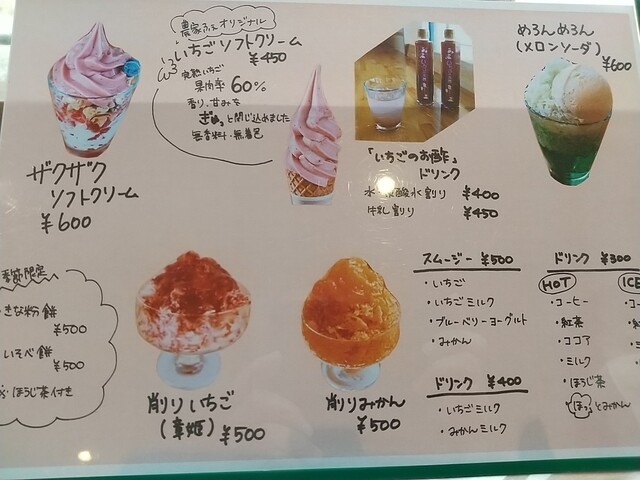 農家カフェオリジナル
いちごソフトクリーム
¥450
完熟いちご
果肉率 60%
香り、甘みを
ぎゅっと閉じ込めました
無香料・無着色
ザクザク
ソフトクリーム
¥600
「いちごのお酢」
ドリンク
酸水割り ¥400
牛乳割り ¥450
めろんめろん
(メロンソーダ)
¥600
季節限定
きな粉餅
¥500
いそべ餅
¥500
ほうじ茶付き
削りいちご
(章姫) ¥500
削りみかん
¥500
スムージー ¥500
・いちご
・いちごミルク
・ブルーベリーヨーグルト
・みかん
ドリンク ¥400
・いちごミルク
・みかんミルク
ドリンク ¥300
HOT
・コーヒー
・紅茶
・ココア
・ミルク
・ほうじ茶
ほっとみかん
ICE